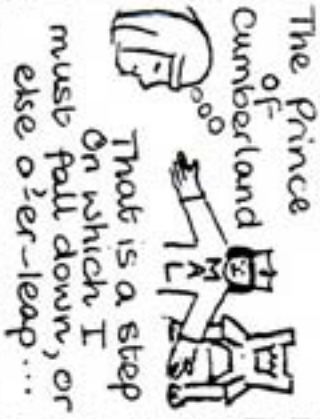 The Prince
of
Cumberland
MAL
That is a step
On which I
must fall down, or
else o'er-leap...